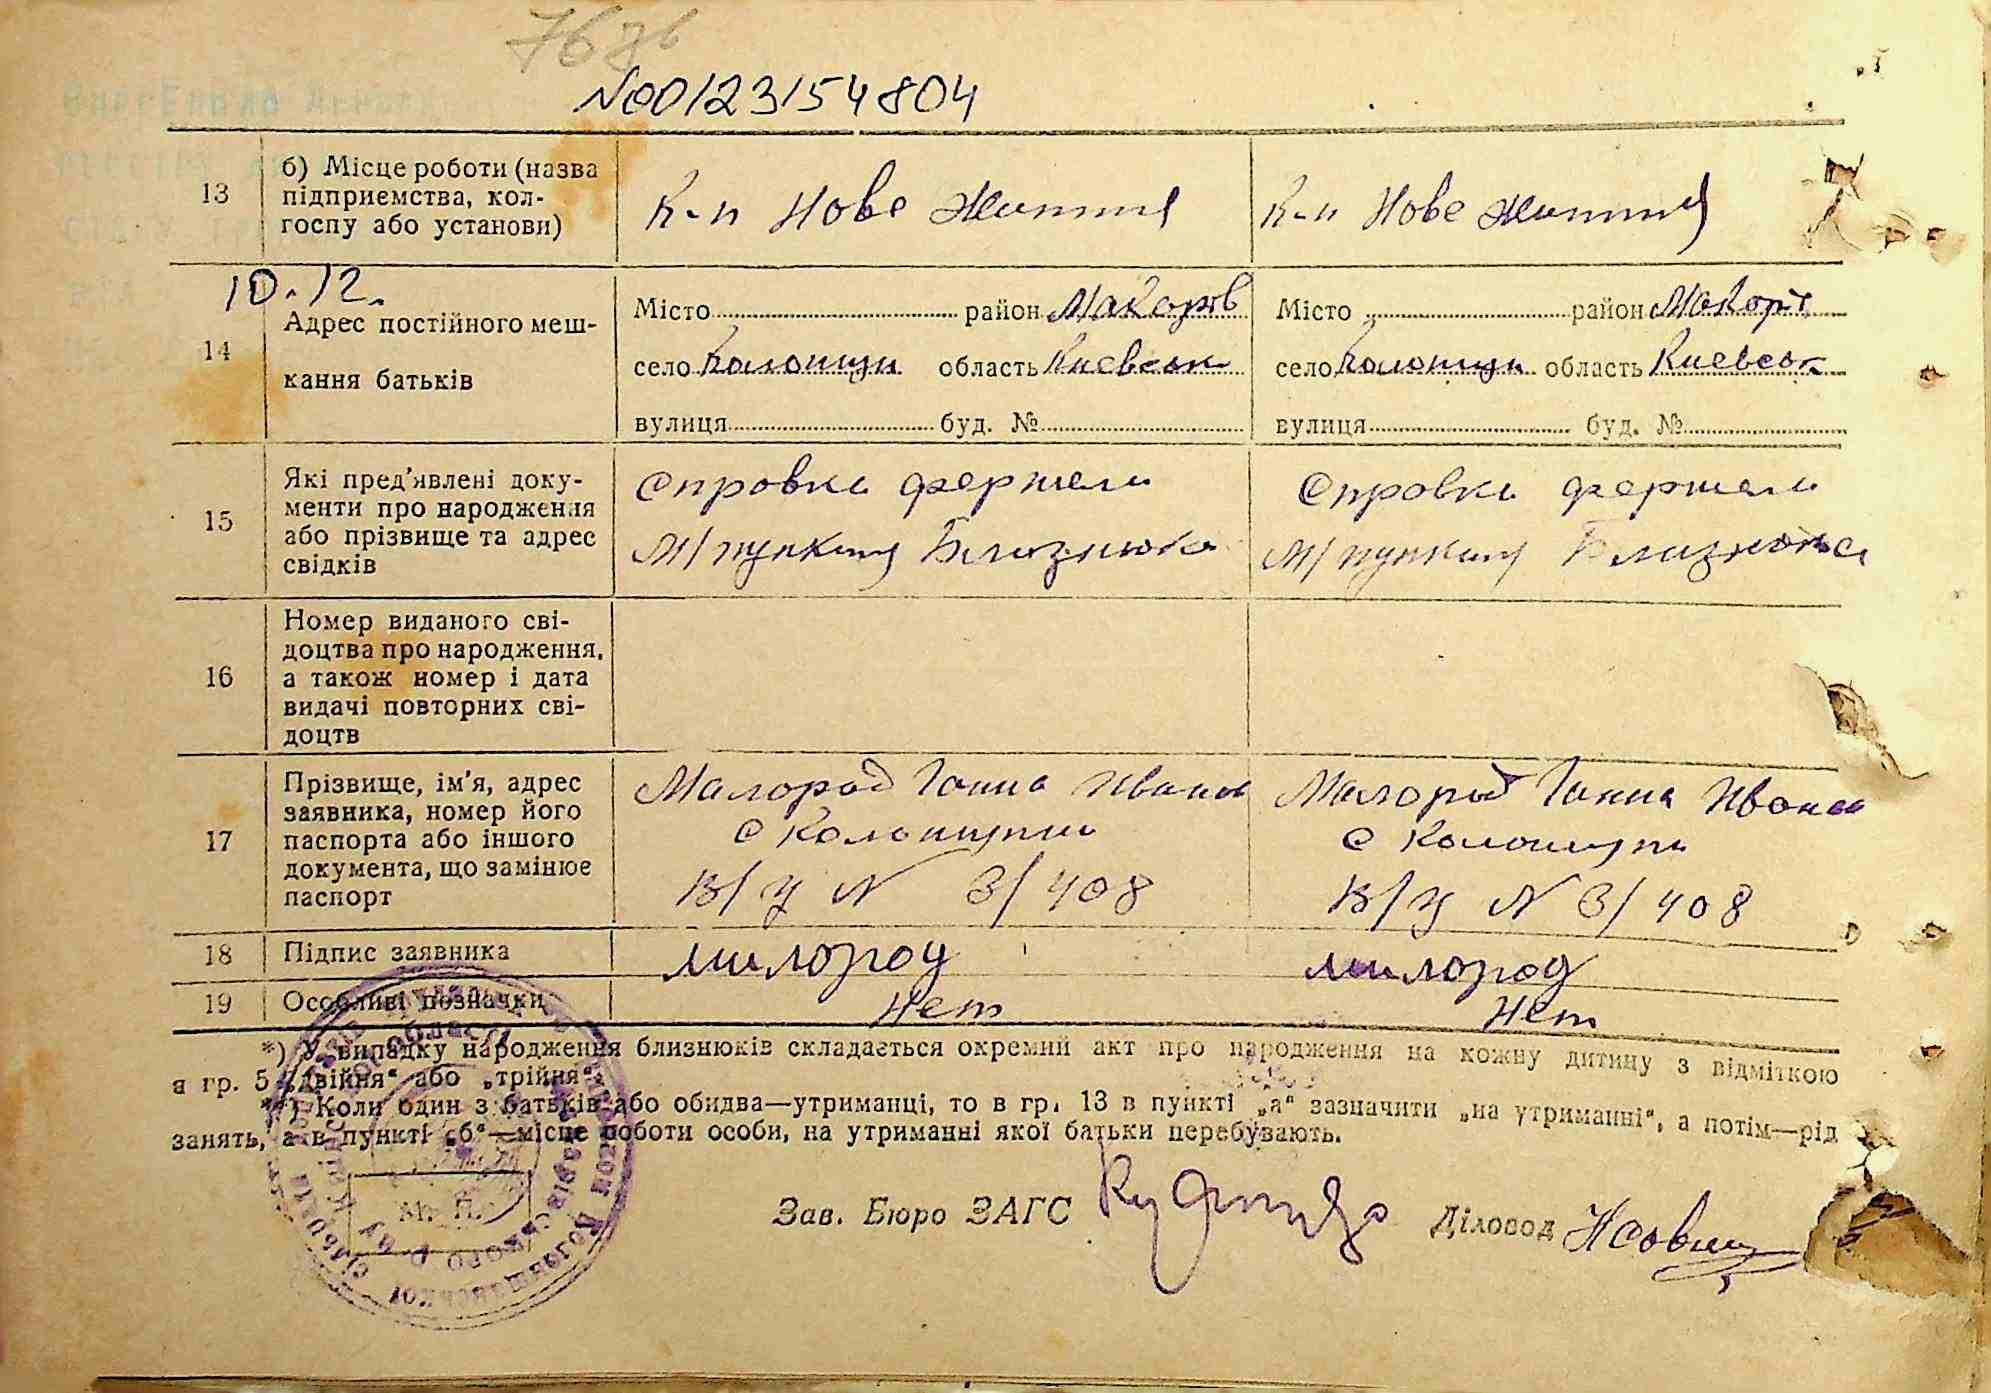 №00123154804
13
б) Місце роботи (назва
підприємства, кол-
госпу або установи)
К-п Нове Життя
К-п Нове Життя
10.12.
14
Адрес постійного меш-
кання батьків
Місто район Макарів
село Колонщи область Києвськ
вулиця буд. №
Місто район Макарі
село Колонщи область Києвськ
вулиця буд. №
15
Які пред'явлені доку-
менти про народження
або прізвище та адрес
свідків
Справка фершела
М/пункту Близнюка
Справка фершела
М/пункту Близнюка
16
Номер виданого сві-
доцтва про народження,
а також номер і дата
видачі повторних сві-
доцтв
17
Прізвище, ім'я, адрес
заявника, номер його
паспорта або іншого
документа, що замінює
паспорт
Малород Ганна Иванов
с Колонщина
В/у N 3/408
Малород Ганна Иванов
с Колонщина
В/у N 3/408
18
Підпис заявника
милород
милород
19
Особливі позначки
Нет
Нет
*) У випадку народження близнюків складається окремий акт про народження на кожну дитину з відміткою
в гр. 5 „двійня“ або „трійня“.
**) Коли один з батьків або обидва—утриманці, то в гр. 13 в пункті „а“ зазначити „на утриманні“, а потім—рід
занять, а в пункті „б“—місце роботи особи, на утриманні якої батьки перебувають.
М. П.
Зав. Бюро ЗАГС
Діловод